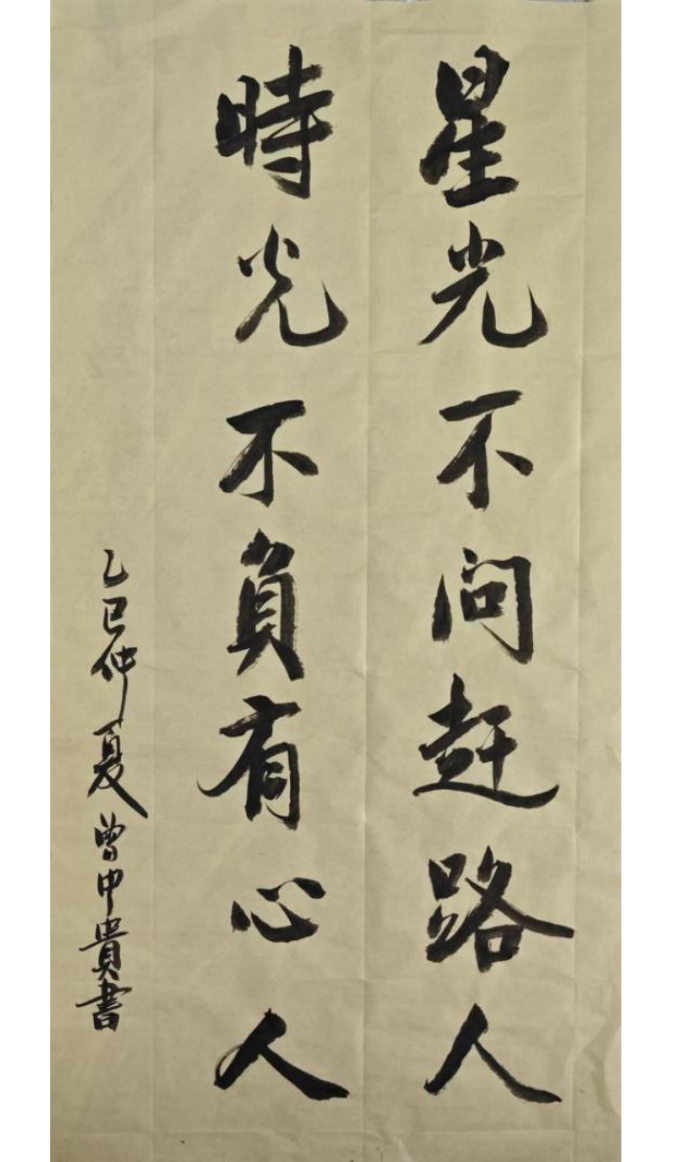 星光不问赶路人
時光不負有心人
乙巳仲夏曾中貴書